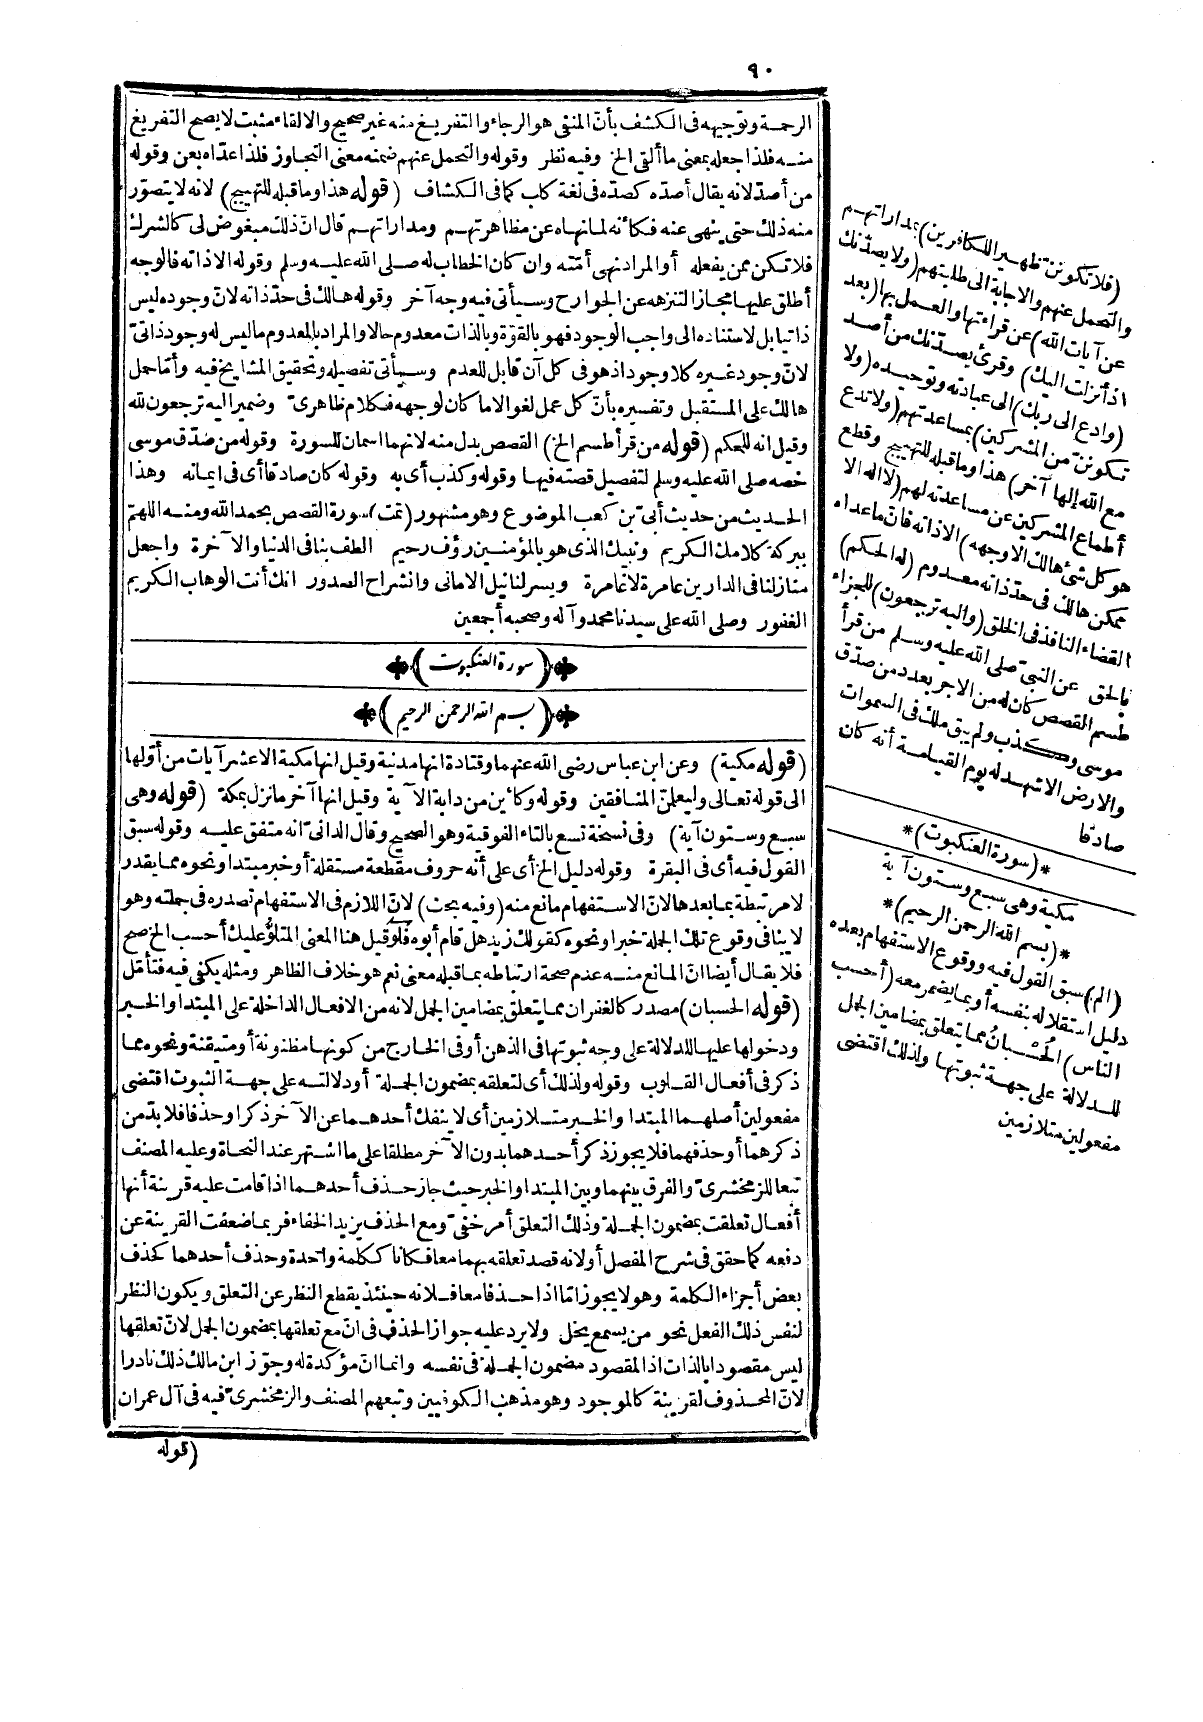 ٩٠
الرحمة وتوجيهه فى الكشف بأن المنفى هو الرجاء والتفريغ منه غير صحيح والالقاء مثبت لا يصح التفريغ
منه فلذا جعله بمعنى ما ألقى الخ وفيه نظر وقوله والتحمل عنهم ضمنه معنى التجاوز فلذا عداه بعن وقوله
من أصد لانه يقال أصده كصده فى لغة كلب كما فى الكشاف (قوله هذا وما قبله للتهييج) لانه لا يتصوّر
منه ذلك حتى ينهى عنه فكأنه لما نهاه عن مظاهرتهم ومداراتهم قال انّ ذلك مبغوض لى كالشرك
فلا تكن ممن يفعله أو المراد نهى أمّته وان كان الخطاب له صلى الله عليه وسلم وقوله الا ذاته فالوجه
أطلق عليها مجازا لتنزهه عن الجوارح وسيأتى فيه وجه آخر وقوله هالك فى حدّ ذاته لانّ وجوده ليس
ذاتيا بل لاستناده الى واجب الوجود فهو بالقوّة وبالذات معدوم حالا والمراد بالمعدوم ما ليس له وجود ذاتىّ
لانّ وجود غيره كلا وجود اذ هو فى كل آن قابل للعدم وسيأتى تفصيله وتحقيق المشايخ فيه وأمّا حمل
هالك على المستقبل وتفسيره بأنّ كل عمل لغو الا ما كان لوجهه فكلام ظاهرىّ وضمير اليه ترجعون لله
وقيل انه للحكم (قوله من قرأ طسم الخ) القصص بدل منه لانهما اسمان للسورة وقوله من صدّق موسى
خصه صلى الله عليه وسلم لتفصيل قصته فيها وقوله وكذب أى به وقوله كان صادقا أى فى ايمانه وهذا
الحديث من حديث أبىّ بن كعب الموضوع وهو مشهور (تمت) سورة القصص بحمد الله ومنه اللهمّ
ببركة كلامك الكريم ونبيك الذى هو بالمؤمنين رؤف رحيم الطف بنا فى الدنيا والآخرة واجعل
منازلنا فى الدارين عامرة لا غامرة ويسر لنا نيل الامانى وانشراح الصدور انك أنت الوهاب الكريم
الغفور وصلى الله على سيدنا محمد وآله وصحبه أجمعين
(سورة العنكبوت)
(بسم الله الرحمن الرحيم)
(قوله مكية) وعن ابن عباس رضى الله عنهما وقتادة انها مدنية وقيل انها مكية الا عشر آيات من أوّلها
الى قوله تعالى وليعلمنّ المنافقين وقوله وكائين من دابة الآية وقيل انها آخر ما نزل بمكة (قوله وهى
سبع وستون آية) وفى نسخة تسع بالتاء الفوقية وهو الصحيح وقال الدانىّ انه متفق عليه وقوله سبق
القول فيه أى فى البقرة وقوله دليل الخ أى على أنه حروف مقطعة مستقلة أو خبر مبتدا ونحوه مما يقدر
لا مرتبطة بما بعدها لانّ الاستفهام مانع منه (وفيه بحث) لانّ اللازم فى الاستفهام تصدره فى جملته وهو
لا ينافى وقوع تلك الجملة خبرا ونحوه كقولك زيد هل قام أبوه فلو قيل هنا المعنى المتلوّ عليك أحسب الخ صح
فلا يقال أيضا انّ المانع منه عدم صحة ارتباطه بما قبله معنى نعم هو خلاف الظاهر ومثله يكفى فيه فتأمّل
(قوله الحسبان) مصدر كالغفران مما يتعلق بمضامين الجمل لانه من الافعال الداخلة على المبتدا والخبر
ودخولها عليها للدلالة على وجه ثبوتها فى الذهن أو فى الخارج من كونها مظنونة أو متيقنة ونحوه مما
ذكر فى أفعال القلوب وقوله ولذلك أى لتعلقه بمضمون الجملة أو دلالته على جهة الثبوت اقتضى
مفعولين أصلهما المبتدا والخبر متلازمين أى لا ينفك أحدهما عن الآخر ذكرا وحذفا فلا بدّ من
ذكرهما أو حذفهما فلا يجوز ذكر أحدهما بدون الآخر مطلقا على ما اشتهر عند النحاة وعليه المصنف
تبعا للزمخشرىّ والفرق بينهما وبين المبتدا والخبر حيث جاز حذف أحدهما اذا قامت عليه قرينة أنها
أفعال تعلقت بمضمون الجملة وذلك التعلق أمر خفىّ ومع الحذف يزيد الخفاء فربما ضعفت القرينة عن
دفعه كما حقق فى شرح المفصل أو لانه قصد تعلقه بهما معا فكانا ككلمة واحدة وحذف أحدهما كحذف
بعض أجزاء الكلمة وهو لا يجوز امّا اذا حذفا معا فلانه حينئذ يقطع النظر عن التعلق ويكون النظر
لنفس ذلك الفعل نحو من يسمع يخل ولا يرد عليه جواز الحذف فى انّ مع تعلقها بمضمون الجمل لانّ تعلقها
ليس مقصودا بالذات اذ المقصود مضمون الجملة فى نفسه وانما انّ مؤكدة له وجوّز ابن مالك ذلك نادرا
لانّ المحذوف لقرينة كالموجود وهو مذهب الكوفيين وتبعهم المصنف والزمخشرىّ فيه فى آل عمران
(قوله
(فلا تكوننّ ظهيرا للكافرين) بمداراتهم
والتحمل عنهم والاجابة الى طلبتهم (ولا يصدّنك
عن آيات الله) عن قراءتها والعمل بها (بعد
اذ أنزلت اليك) وقرئ يصدّنك من أصد
(وادع الى ربك) الى عبادته وتوحيده (ولا
تكوننّ من المشركين) بمساعدتهم (ولا تدع
مع الله إلها آخر) هذا وما قبله للتهييج وقطع
أطماع المشركين عن مساعدته لهم (لا اله الا
هو كل شئ هالك الا وجهه) الا ذاته فانّ ما عداه
ممكن هالك فى حدّ ذاته معدوم (له الحكم)
القضاء النافذ فى الخلق (واليه ترجعون) للجزاء
بالحق عن النبىّ صلى الله عليه وسلم من قرأ
طسم القصص كان له من الاجر بعدد من صدّق
موسى وكذب ولم يبق ملك فى السموات
والارض الا شهد له يوم القيامة أنه كان
صادقا
*(سورة العنكبوت)*
مكية وهى سبع وستون آية
*(بسم الله الرحمن الرحيم)*
(الم) سبق القول فيه ووقوع الاستفهام بعده
دليل استقلاله بنفسه أو بما يضمر معه (أحسب
الناس) الحُسْبانُ مما يتعلق بمضامين الجمل
للدلالة على جهة ثبوتها ولذلك اقتضى
مفعولين متلازمين